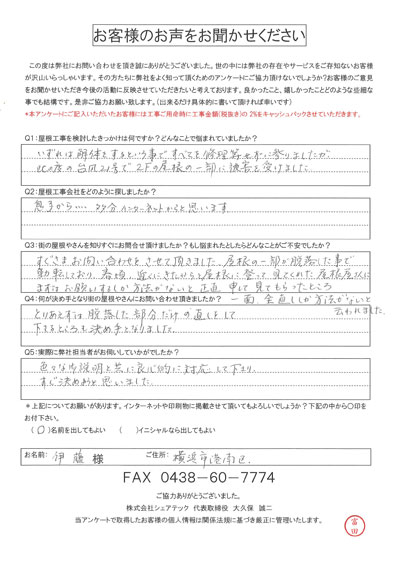 お客様のお声をお聞かせください
この度は弊社にお問い合わせを頂き誠にありがとうございました。世の中には弊社の存在やサービスをご存知ないお客様
が沢山いらっしゃいます。その方たちに弊社をよく知って頂くためのアンケートにご協力頂けないでしょうか?お客様のご意見
をお聞かせいただき今後の活動に反映させていただきたいと考えております。良かったこと、嬉しかったことどのような些細な
事でも結構です。是非ご協力お願い致します。(出来るだけ具体的に書いて頂ければ幸いです)
*本アンケートにご記入いただいたお客様には工事ご用命時に工事金額(税抜き)の 2%をキャッシュバックさせていただきます。
Q1:屋根工事を検討したきっかけは何ですか?どんなことで悩まれていましたか?
いずれは解体をするという事ですべてを修理等せずに参りましたが
台風21号で2Fの屋根の一部に被害を受けました。
Q2:屋根工事会社をどのように探しましたか?
息子から…. 多分インターネットからと思います
Q3:街の屋根やさんを知りすぐにお問合せ頂けましたか?もし悩まれたとしたらどんなことがご不安でしたか?
すぐさまお問い合わせをさせて頂きました 屋根の一部が脱落した事で
動転しており、
Q4:何が決め手となり街の屋根やさんにお問い合わせ頂きましたか?
一面全直ししか方法がないと
云われました。
とりあえずは脱落した部分だけの直しをして
下さるところも決め手となりました。
Q5:実際に弊社担当者がお伺いしていかがでしたか?
色々な御説明と共に良心的に対応して下さり、
すぐ決めようと思いました。
*上記についてお願いがあります。インターネットや印刷物に掲載させて頂いてもよろしいでしょうか?下記の中から〇印を
お付下さい。
(〇)名前を出してもよい ( )イニシャルなら出してもよい
お名前: 伊藤 様 ご住所: 横浜市港南区
FAX 0438-60-7774
ご協力ありがとうございました。
株式会社シェアテック 代表取締役 大久保 誠二
当アンケートで取得したお客様の個人情報は関係法規に基づき厳正に管理いたします。
富田